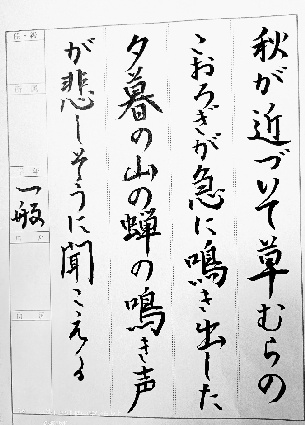 秋が近づいて草むらの
こおろぎが急に鳴き出した
夕暮の山の蝉の鳴き声
が悲しそうに聞こえる
一般